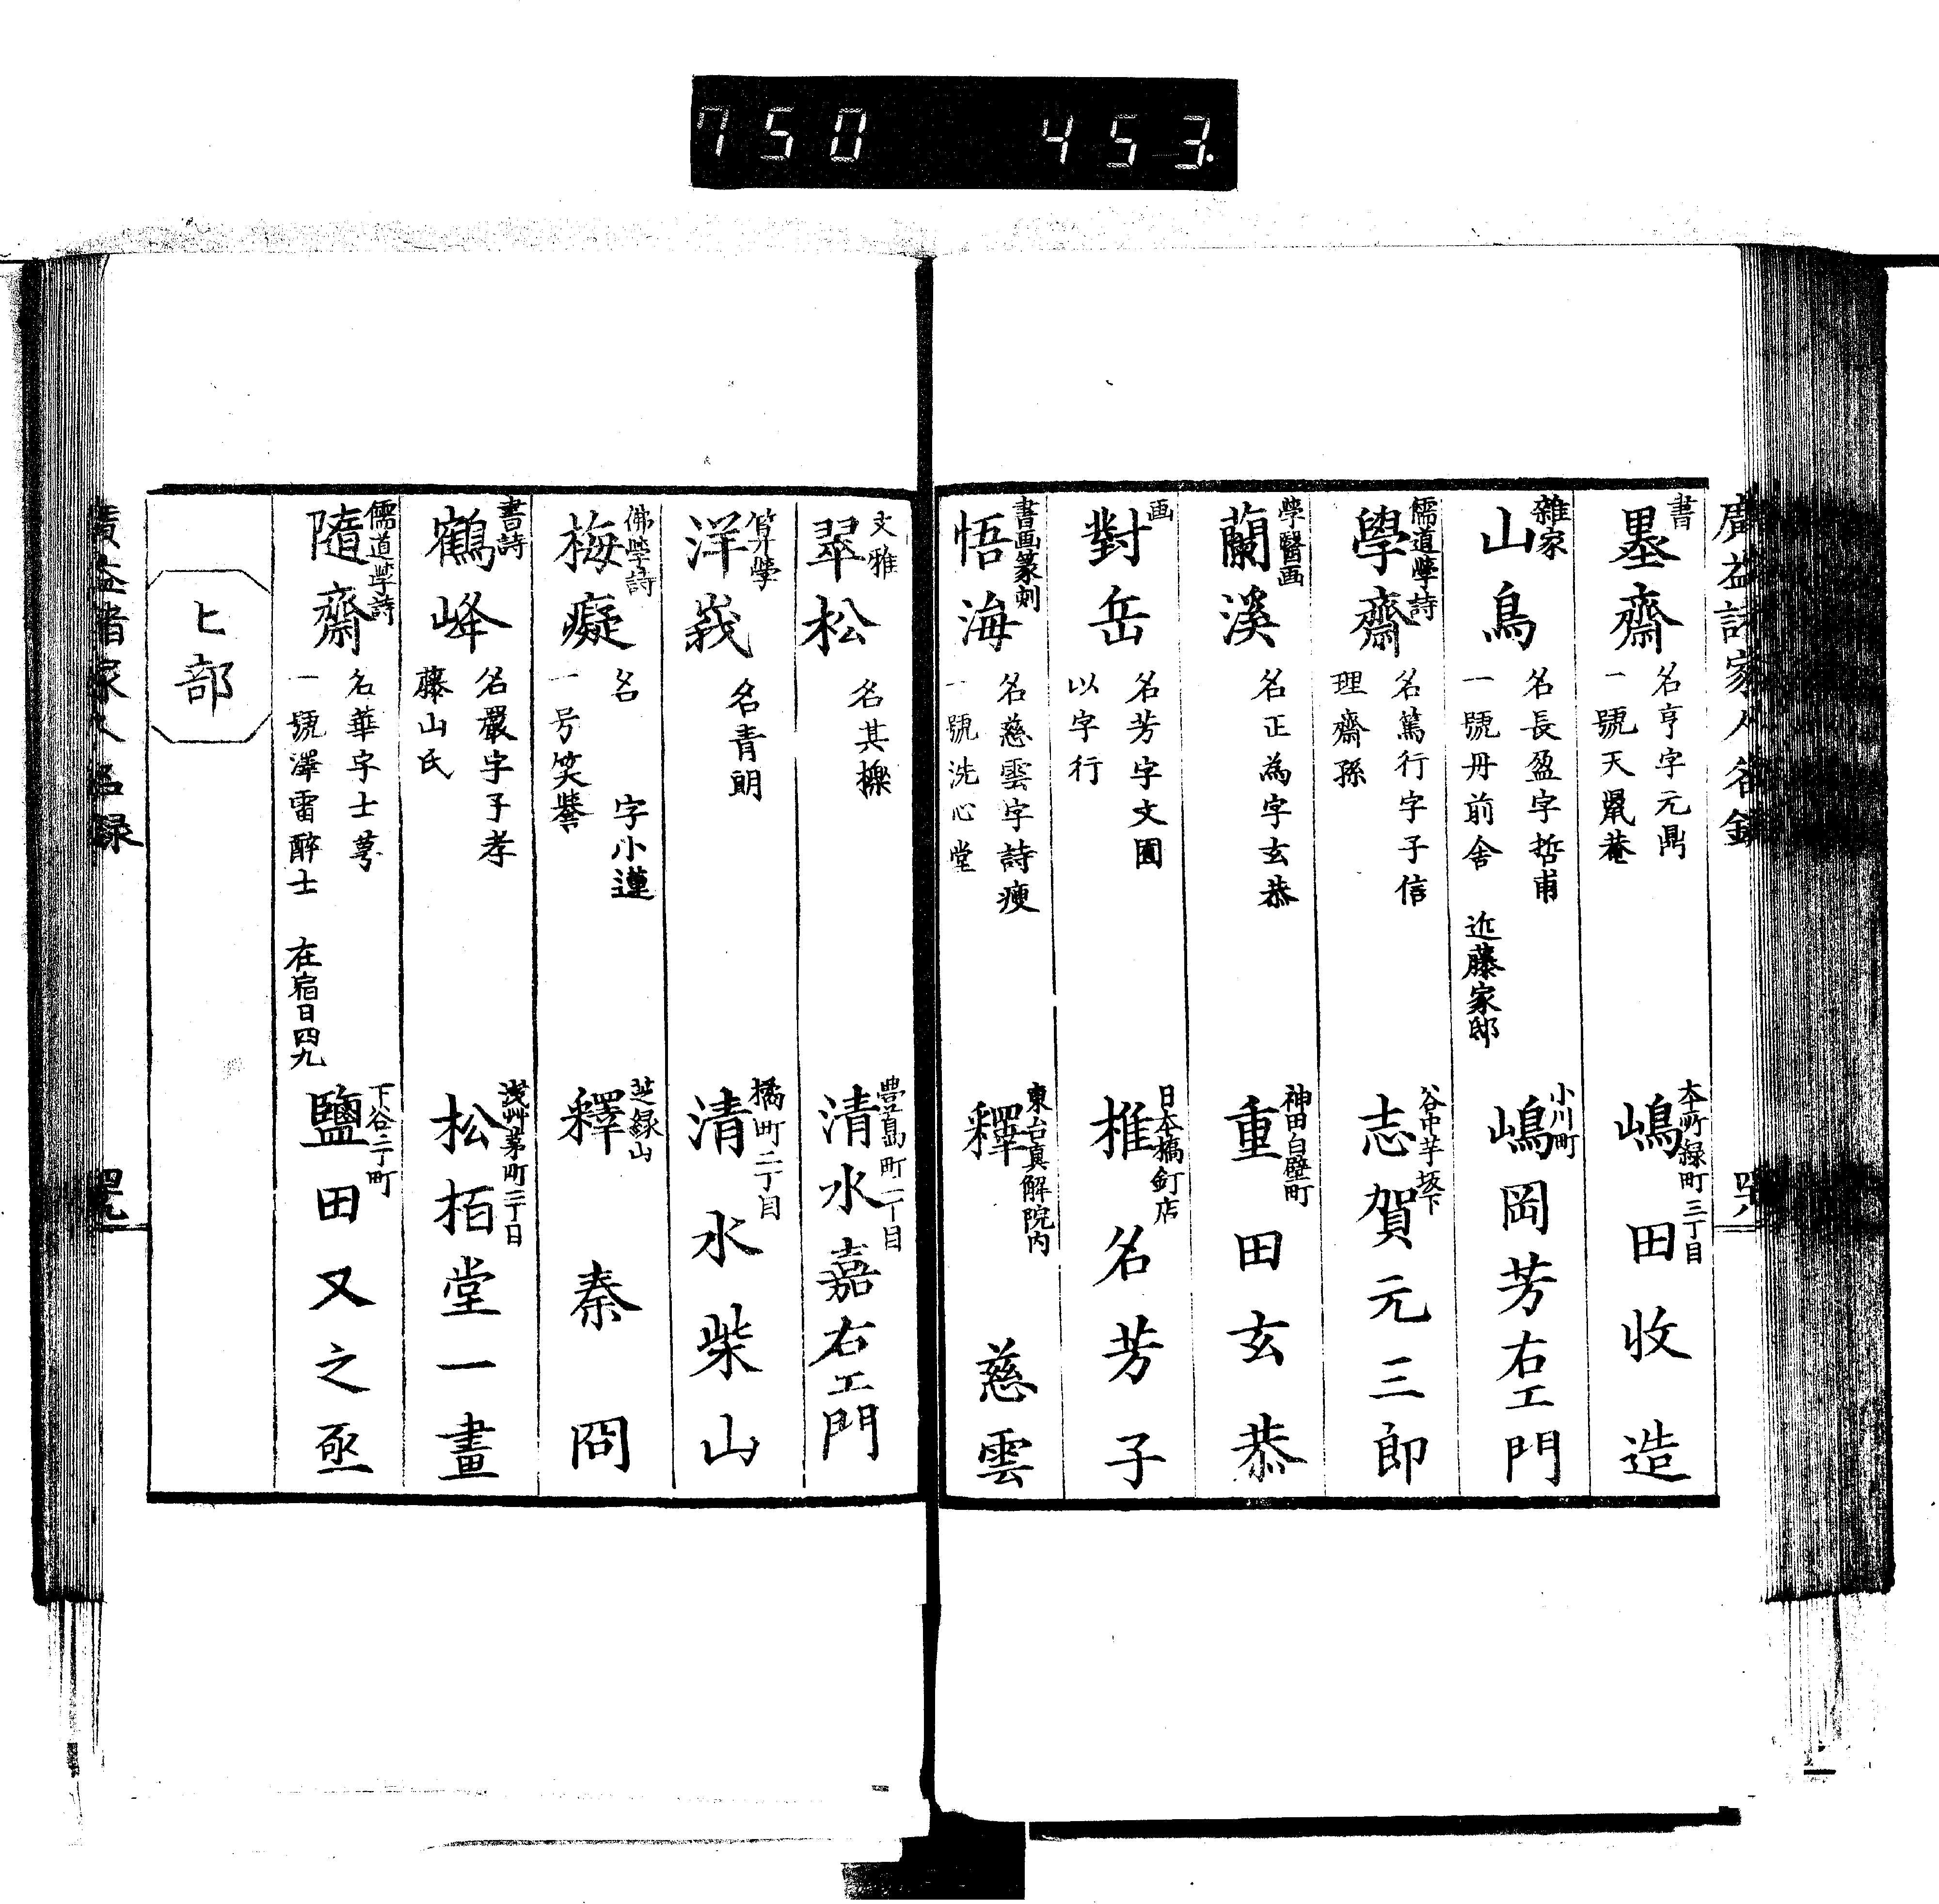 750 453.
廣益諸家人名録
書
墨齋
名亨字元鼎
一號天鼠菴
本所緑町三丁目
嶋田收造
雜家
山鳥
名長盈字哲甫
一號丹前舎
近藤家邸
小川町
嶋岡芳右エ門
儒道學詩
學齋
名篤行字子信
理齋孫
谷中芋坂下
志賀元三郎
學醫画
蘭溪
名正為字玄恭
神田白壁町
重田玄恭
画
對岳
名芳字文圃
以字行
日本橋釘店
椎名芳子
書画篆刻
悟海
名慈雲字詩痩
一號洗心堂
東台真解院内
釋慈雲
文雅
翠松
名其櫟
豊島町一丁目
清水嘉右エ門
算學
洋峩
名青朗
橘町二丁目
清水柴山
佛學詩
梅癡
名 字小蓮
一号笑誉
芝緑山
釋秦冏
書詩
鶴峰
名嚴字子孝
藤山氏
浅艸茅町二丁目
松栢堂一畫
儒道學詩
隨齋
名華字士萼
一號澤雷醉士
在宿日四九
下谷二丁町
鹽田又之亟
ヒ部
廣益諸家人名録